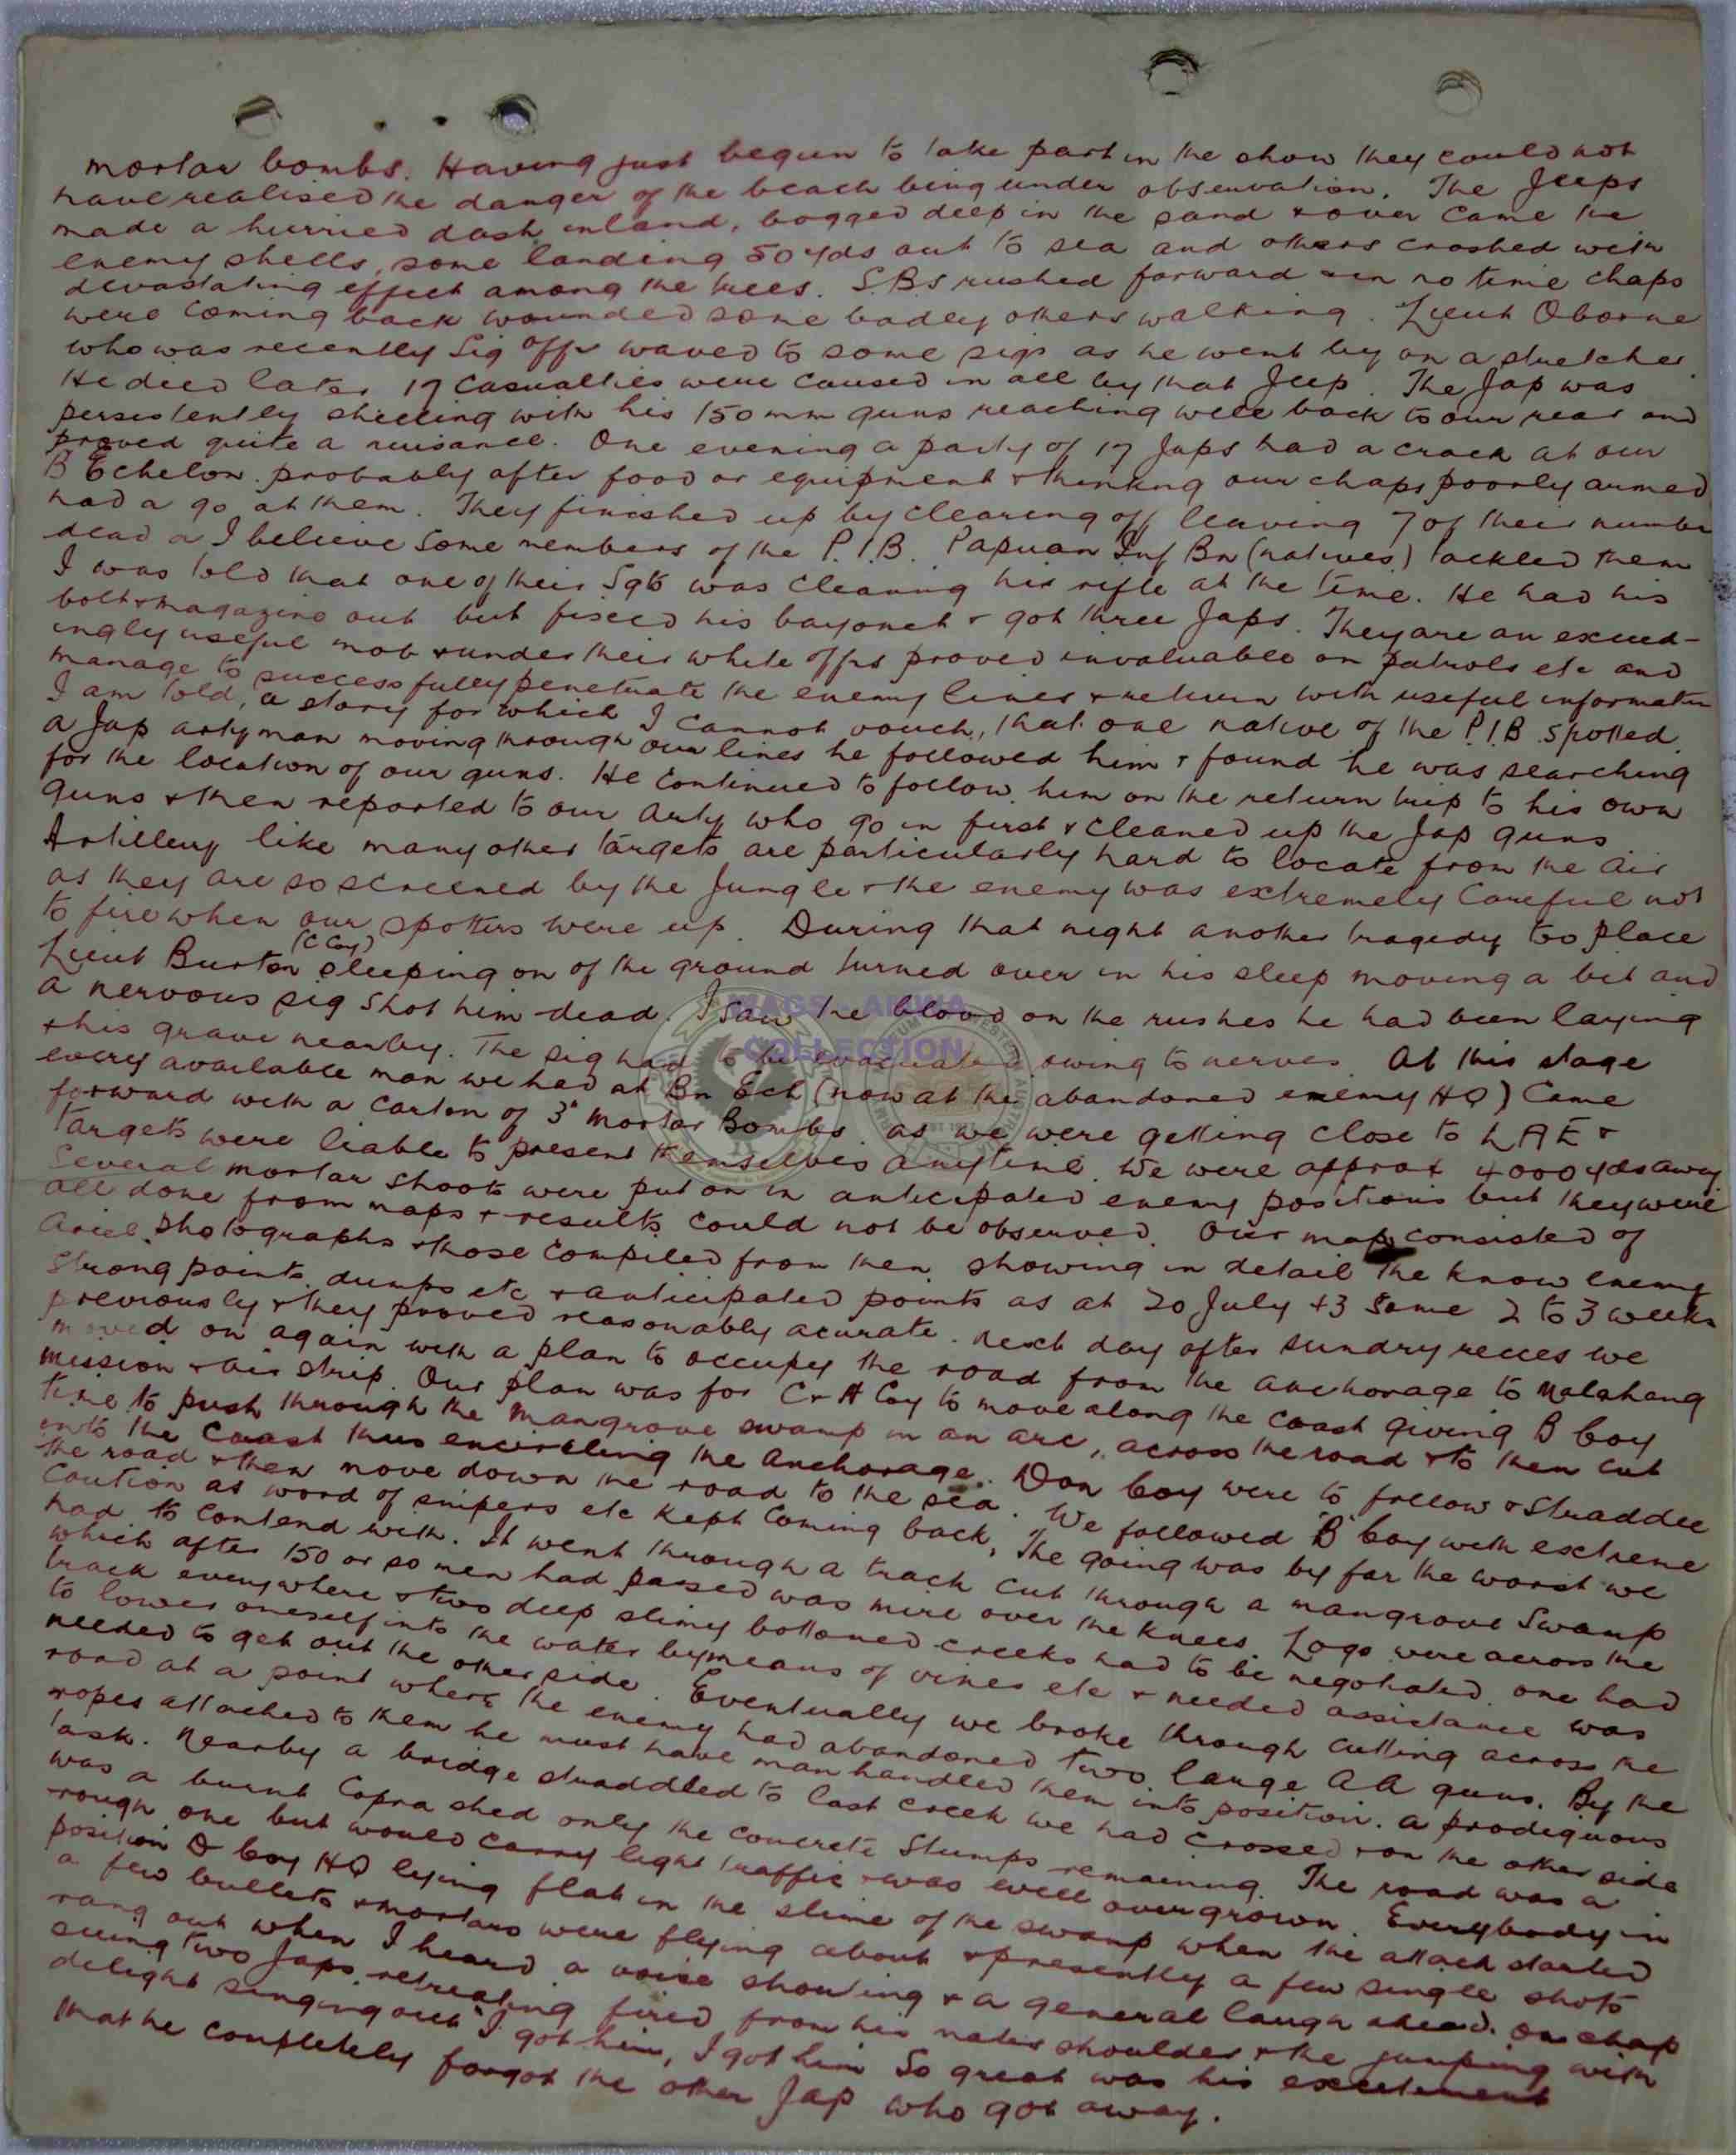 mortar bombs. Having just begun to take part in the show they could not
have realised the danger of the beach being under observation. The Jeeps
made a hurried dash inland, bogged deep in the sand & over came the
enemy shells, some landing 50 yds out to sea and others crashed with
devastating effect among the trees. S.B.s rushed forward & in no time chaps
were coming back wounded some badly others walking. Lieut Oborne
who was recently Sig Offr waved to some sigs as he went by on a stretcher.
He died later. 17 casualties were caused in all by that Jeep. The Jap was
persistently shelling with his 150 mm guns reaching well back to our rear and
proved quite a nuisance. One evening a party of 17 Japs had a crack at our
B Echelon. probably after food or equipment & thinking our chaps poorly armed
had a go at them. They finished up by clearing off leaving 7 of their number
dead a I believe some members of the P.I.B. Papuan Inf Bn (natives) tackled them
I was told that one of their Sgts was cleaning his rifle at the time. He had his
bolt & magazine out but fixed his bayonet & got three Japs. They are an exceed-
ingly useful mob & under their white offrs proved invaluable on patrols etc and
manage to successfully penetrate the enemy lines & return with useful information
I am told, a story for which I cannot vouch, that one native of the P.I.B. spotted
a Jap arty man moving through our lines he followed him & found he was searching
for the location of our guns. He continued to follow him on the return trip to his own
guns & then reported to our arty who go in first & cleaned up the Jap guns
Artillery like many other targets are particularly hard to locate from the air
as they are so screened by the Jungle & the enemy was extremely careful not
to fire when our spotters were up. During that night another tragedy too place
Lieut Burton (C Coy) sleeping on of the ground turned over in his sleep moving a bit and
a nervous sig shot him dead. I saw the blood on the rushes he had been laying
& his grave nearby. The sig had to be evacuated owing to nerves. At this stage
every available man we had at Bn Ech (now at the abandoned enemy HQ) came
forward with a carton of 3" Mortar Bombs. as we were getting close to LAE &
targets were liable to present themselves anytime. We were approx 4000 yds away
Several mortar shoots were put on in anticipated enemy positions but they were
all done from maps & results could not be observed. Our maps consisted of
ariel photographs & those compiled from them showing in detail the know enemy
strong points. dumps etc & anticipated points as at 20 July 43 some 2 to 3 weeks
previously & they proved reasonably acurate. Next day after sundry recces we
moved on again with a plan to occupy the road from the anchorage to Malahang
mission & air strip. Our plan was for C & A Coy to move along the coast giving B Coy
time to push through the Mangrove swamp in an arc, across the road & to then cut
into the Coast thus encircling the anchorage. Don Coy were to follow & straddle
the road & then move down the road to the sea. We followed 'B' Coy with extreme
caution as word of snipers etc kept coming back. The going was by far the worst we
had to contend with. It went through a track cut through a mangrove swamp
which after 150 or so men had passed was mire over the knees. Logs were across the
track everywhere & two deep slimy bottomed creeks had to be negotiated. one had
to lower oneself into the water by means of vines etc & needed assistance was
needed to get out the other side. Eventually we broke through cutting across the
road at a point where the enemy had abandoned two large AA guns. By the
ropes attached to them he must have man handled them into position. a prodiguous
task. Nearby a bridge straddled to last creek we had crossed & on the other side
was a burnt Copra shed only the concrete stumps remaining. The road was a
rough one but would carry light traffic & was well overgrown. Everybody in
position D Coy HQ lying flat in the slime of the swamp when the attack started
a few bullets & mortars were flying about & presently a few single shots
rang out when I heard a voice shouting & a general laugh ahead. One chap
seeing two Japs retreating fired from his mates shoulder & the jumping with
delight singing out "I got him, I got him So great was his excitement
that he completely forgot the other Jap who got away.